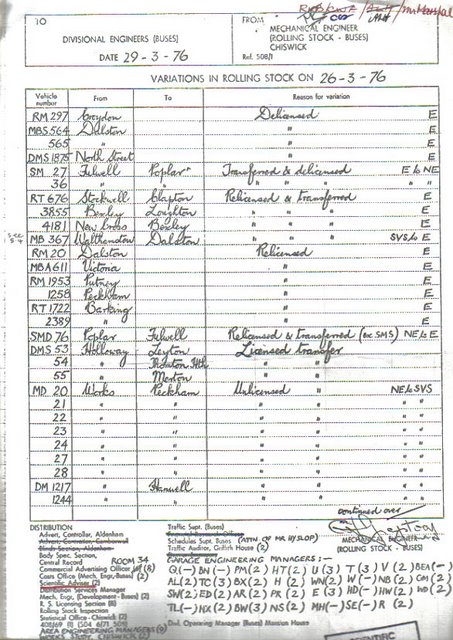 10
DIVISIONAL ENGINEERS (BUSES)
DATE 29-3-76
FROM
MECHANICAL ENGINEER
(ROLLING STOCK - BUSES)
CHISWICK
Ref. 508/1
VARIATIONS IN ROLLING STOCK ON 26-3-76
Vehicle number From To Reason for variation
RM 297 Croydon Delicensed E
MBS 564 Dalston " E
565 " " E
DMS 1875 North Street " E
SM 27 Fulwell Poplar Transferred & delicensed E to NE
36 " " " " " " "
RT 676 Stockwell Clapton Relicensed & transferred E
3855 Bexley Loughton " " " E
4181 New Cross Bexley " " " E
MB 367 Walthamstow Dalston " " " SVS to E
RM 20 Dalston Relicensed E
MBA 611 Victoria " E
RM 1953 Putney " E
1258 Peckham " E
RT 1722 Barking " E
2389 " " E
SMD 76 Poplar Fulwell Relicensed & transferred (ex SMS) NE to E
DMS 53 Holloway Leyton Licensed transfer
54 " Thornton Hth " "
55 " Merton " "
MD 20 Works Peckham Unlicensed NE to SVS
21 " " " " "
22 " " " " "
23 " " " " "
24 " " " " "
27 " " " " "
28 " " " " "
DM 1217 " Hanwell "
1244 " " "
continued over
DISTRIBUTION
Advert, Controller, Aldenham
Body Spec, Section,
Central Record ROOM 34
Commercial Advertising Officer (8)
Costs Office (Mech. Engr, Buses) (2)
Scientific Adviser (2)
Distribution Services Manager
Mech. Engr, (Development - Buses) (2)
R. S. Licensing Section (8)
Rolling Stock Inspection
Statistical Office - Chiswick (2)
AREA ENGINEERING MANAGERS (9)
WORKS STUDY, CHISWICK (2)
Traffic Supt. (Buses)
Schedules Supt. (Buses) (ATTN OF MR HYSLOP)
Traffic Auditor, Griffith House (2)
MECHANICAL ENGINEER
(ROLLING STOCK - BUSES)
GARAGE ENGINEERING MANAGERS :-
Q(-) BN(-) PM(2) HT(2) U(3) T(3) V(2) BEA(-)
AL(2) TC(3) BX(2) H(2) WN(2) W(-) NB(2) GM(2)
SW(2) ED(2) AR(2) PR(2) E(3) HD(-) HW(2) WD(2)
TL(-) NX(2) BW(3) NS(2) MH(-) SE(-) R(2)
Dvd. Operating Manager (Buses) Mansion House